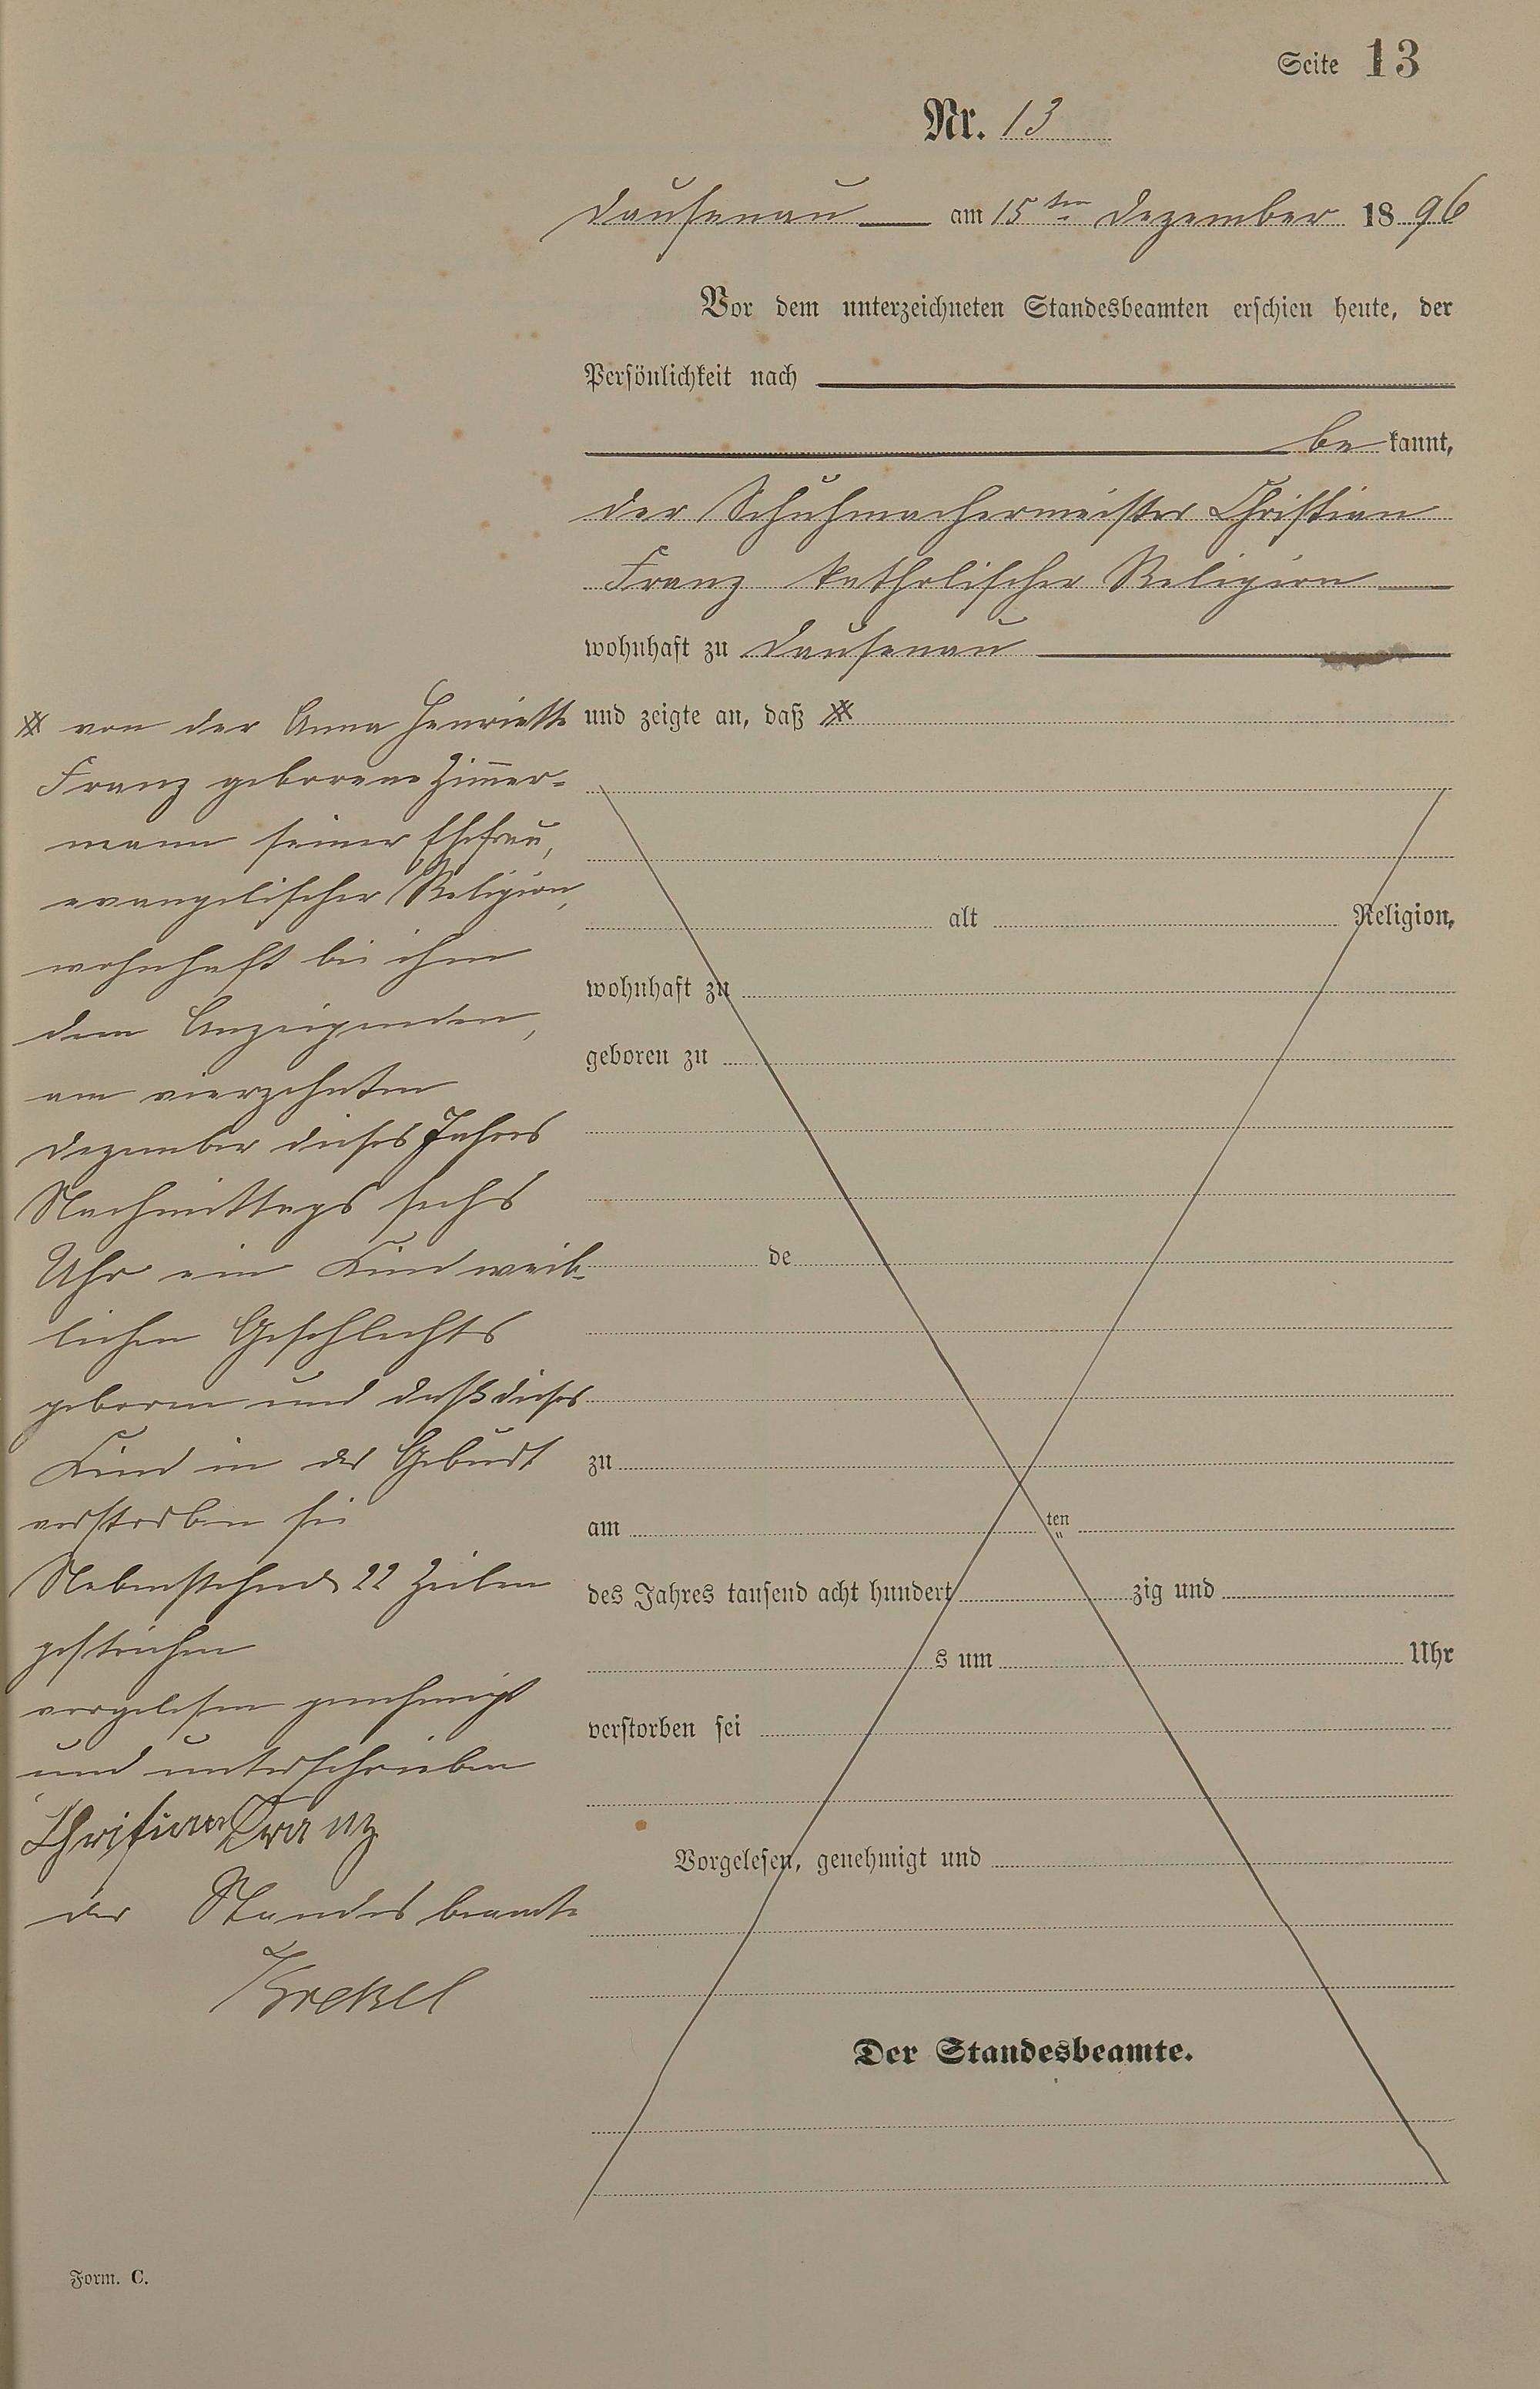 Seite 13
Nr. 13
Dausenau am 15ten Dezember 1896
Vor dem unterzeichneten Standesbeamten erschien heute, der
Persönlichkeit nach
be kannt,
der Schuhmachermeister Christian
Franz katholischer Religion
wohnhaft zu Dausenau
und zeigte an, daß #
# von der Anna Henriette
Franz geborene Zimmer-
mann seiner Ehefrau,
evangelischer Religion,
wohnhaft bei ihm
dem Anzeigenden,
am vierzehnten
Dezember dieses Jahres
Nachmittags sechs
Uhr ein Kind weib-
lichen Geschlechts
geboren und daß dieses
Kind in der Geburt
verstorben sei
Nebenstehend 22 Zeilen
gestrichen
vorgelesen genehmigt
und unterschrieben
Christian Franz
der Standesbeamte
Krekel
alt Religion,
wohnhaft zu
geboren zu
de
zu
am ten
des Jahres tausend acht hundert zig und
s um Uhr
verstorben sei
Vorgelesen, genehmigt und
Der Standesbeamte.
Form. C.